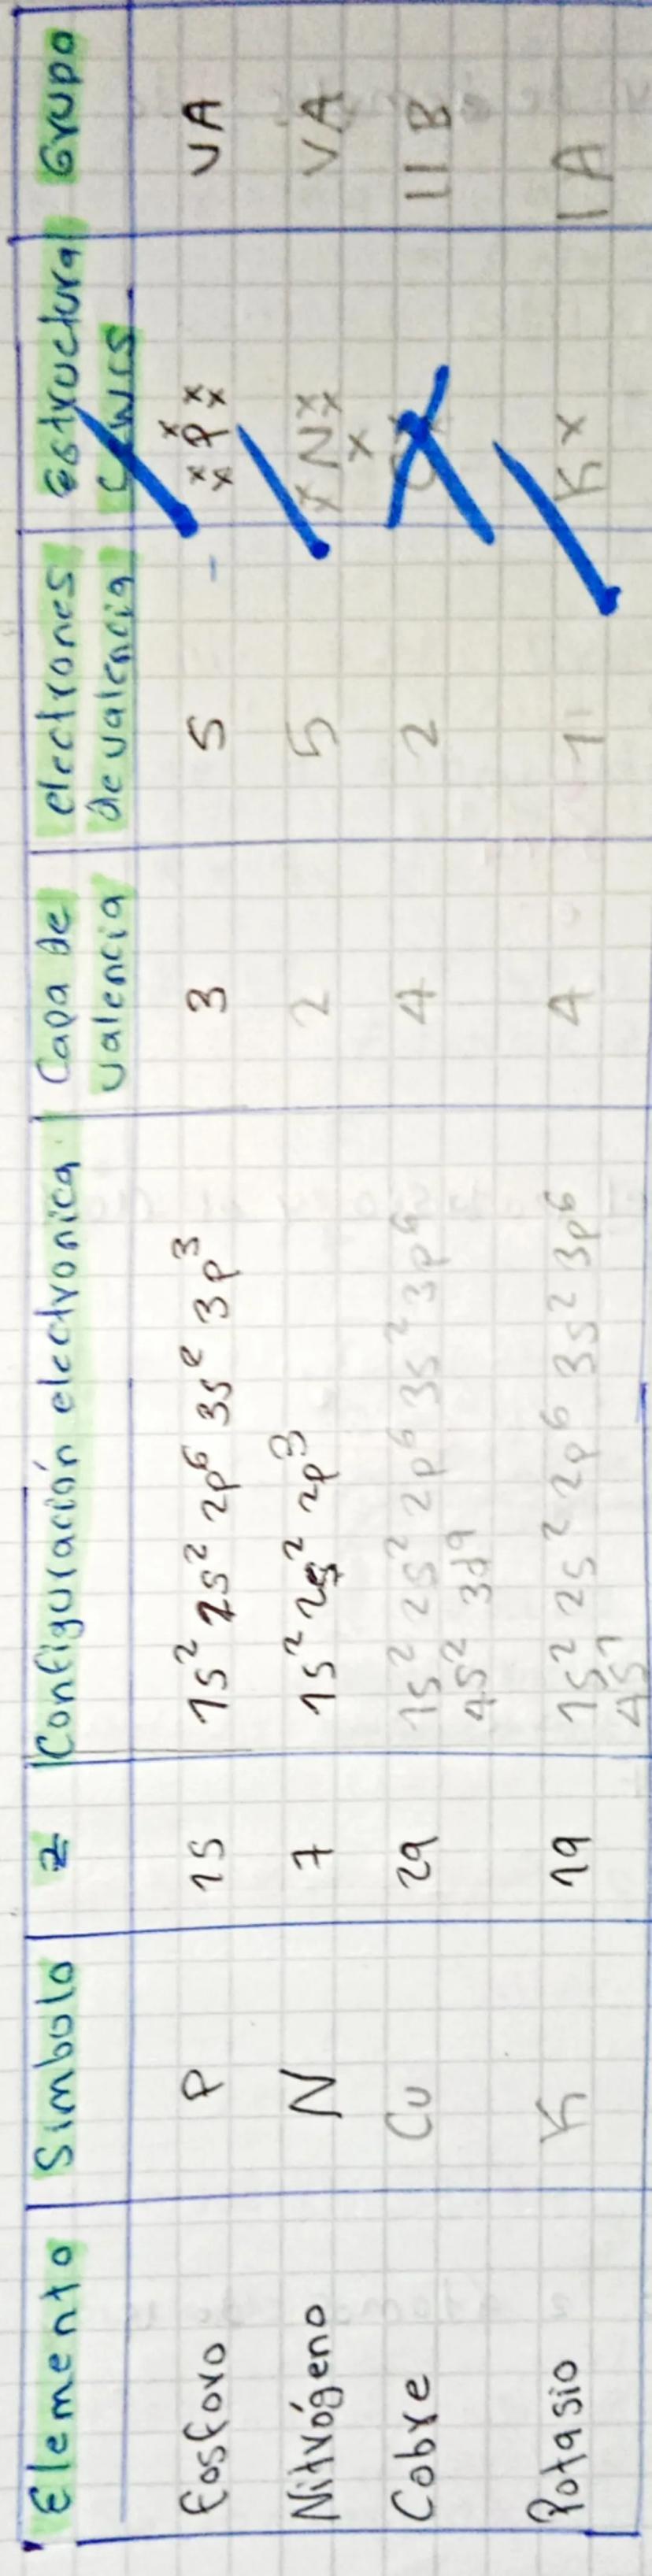 Elemento Simbolo Z Configuración electronica Capa de valencia electrones de valencia Estructura Lewis Grupo
Fosforo P 15 1s² 2s² 2p⁶ 3s² 3p³ 3 5 P VA
Nitrógeno N 7 1s² 2s² 2p³ 2 5 N VA
Cobre Cu 29 1s² 2s² 2p⁶ 3s² 3p⁶ 4 2 II B
4s² 3d⁹
Potasio K 19 1s² 2s² 2p⁶ 3s² 3p⁶ 4 1 K x I A
4s¹